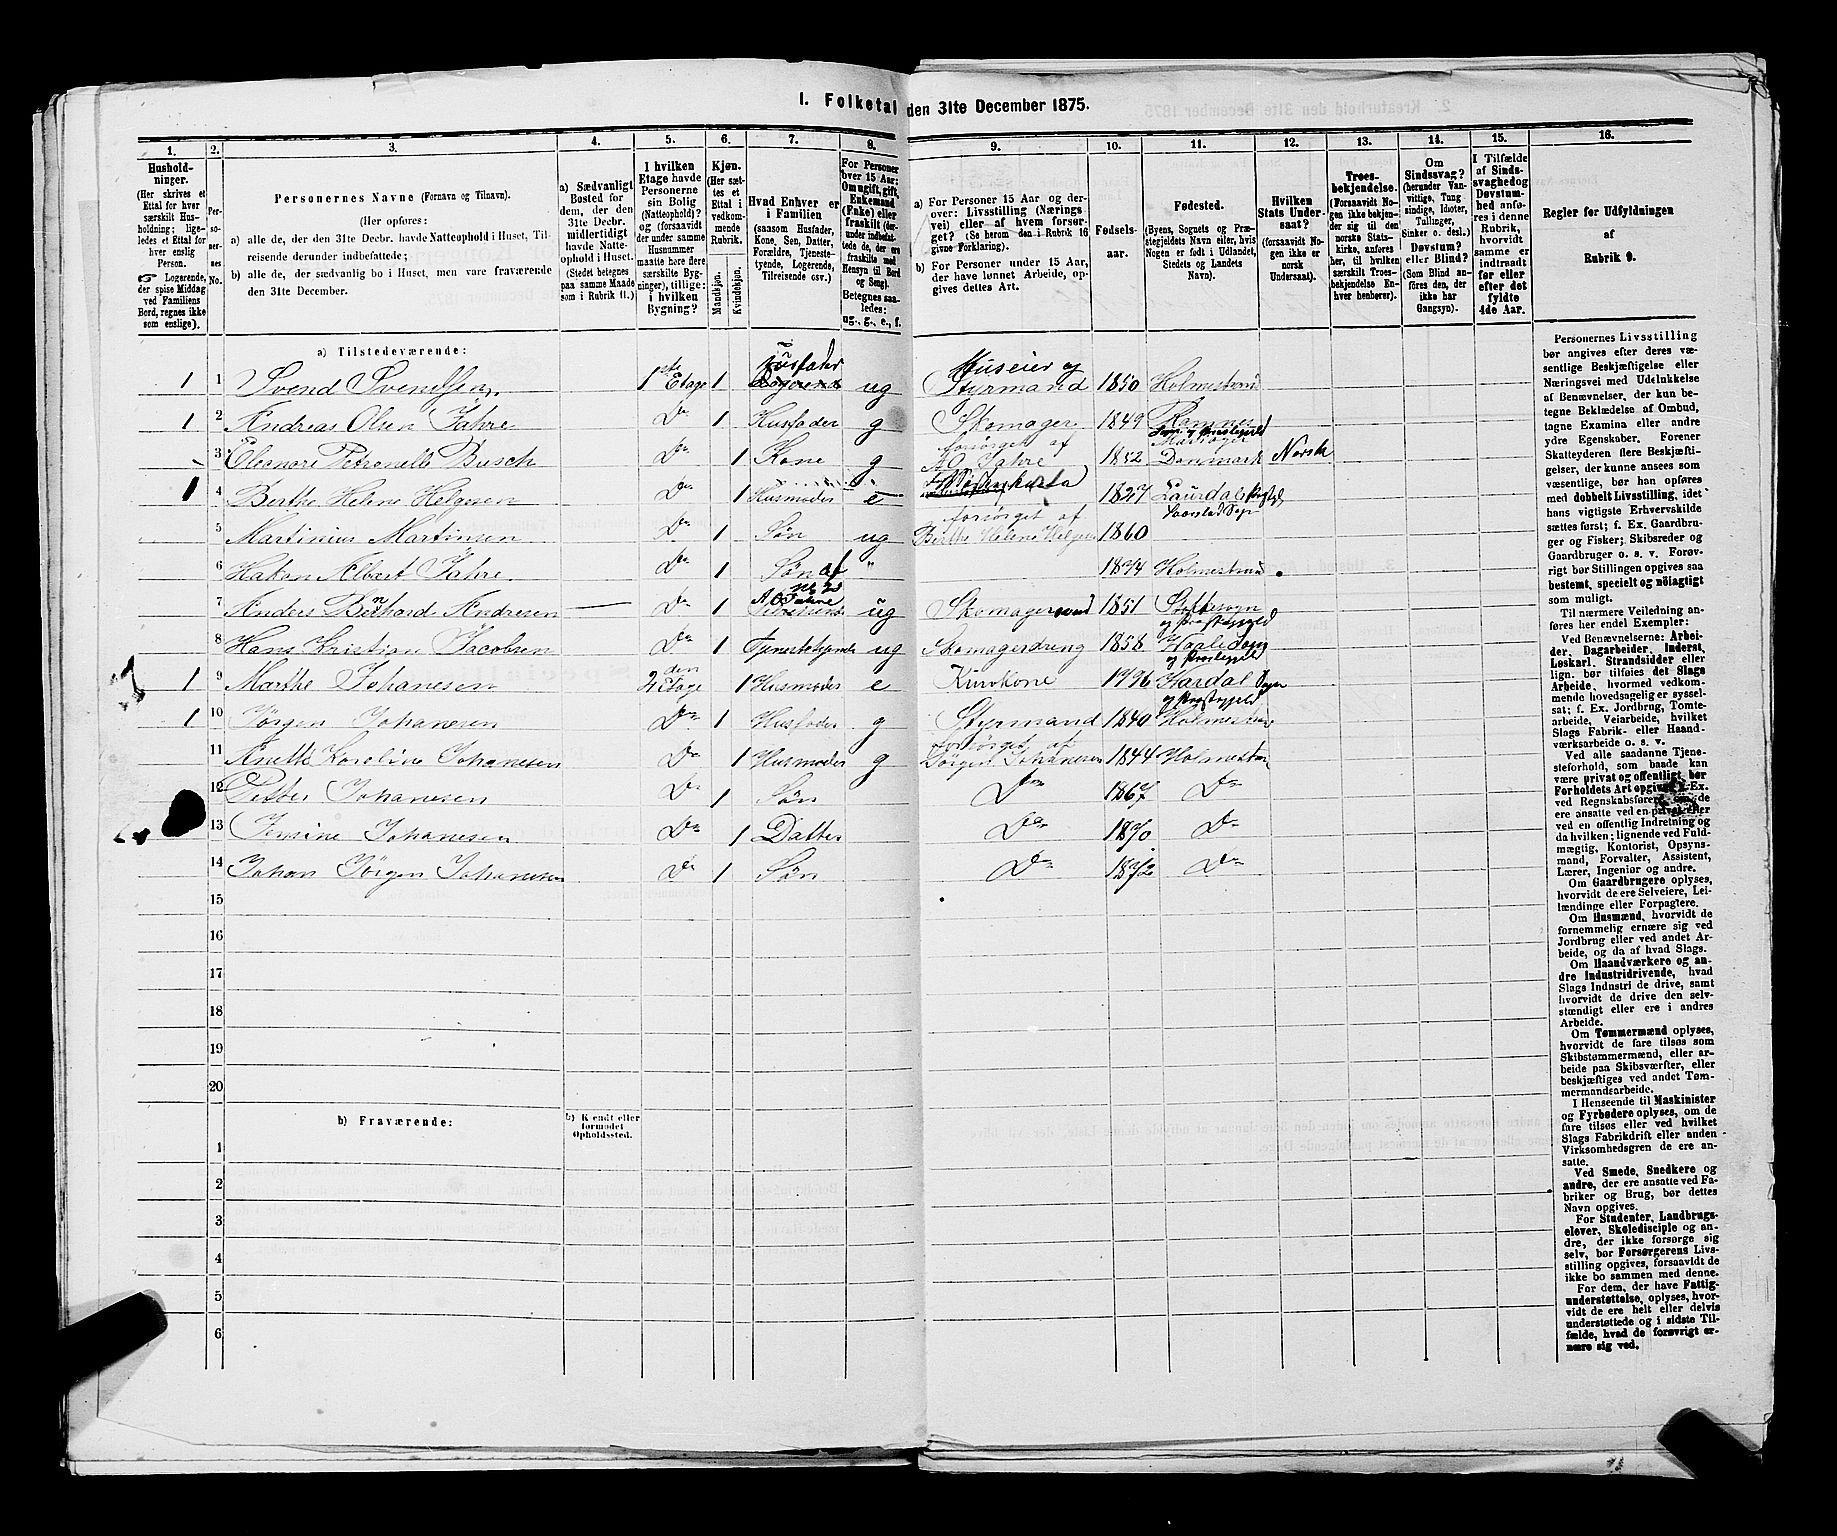 I. Folketal den 31te December 1875.
1. 2. 3. 4. 5. 6. 7. 8. 9. 10. 11. 12. 13. 14. 15. 16.
Hushold-
ninger.
(Her skrives et
Ettal for hver
særskilt Hus-
holdning; lige-
ledes et Ettal for
hver enslig
Person.
Logerende,
der spise Middag
ved Familiens
Bord, regnes ikke
som enslige).
Per-
so-
ner-
nes
No.
Personernes Navne (Fornavn og Tilnavn).
(Her opføres:
a) alle de, der den 31te Decbr. havde Natteophold i Huset, Til-
reisende derunder indbefattede;
b) alle de, der sædvanlig bo i Huset, men vare fraværende
den 31te December.
a) Sædvanligt
Bosted for
dem, der den
31te Decbr.
midlertidigt
havde Natte-
ophold i Huset.
(Stedet betegnes
paa samme Maade
som i Rubrik 11.)
I hvilken
Etage havde
Personerne
sin Bolig
(Natteophold)?
og (forsaavidt
der under samme
Husnummer
maatte høre flere
særskilte Byg-
ninger), tillige:
i hvilken
Bygning?
Kjøn.
(Her sæt-
tes et
Ettal i
vedkom-
mende
Rubrik.
Mandkjøn.
Kvindekjøn.
Hvad Enhver er
i Familien
(saasom Husfader,
Kone, Søn, Datter,
Forældre, Tjeneste-
tyende, Logerende,
Tilreisende osv.)
For Personer
over 15 Aar:
Om ugift, gift,
Enkemand
(Enke) eller
fraskilt (der-
under indbefat-
tede de, der ere
fraskilte med
Hensyn til Bord
og Seng).
Betegnes saa-
ledes:
ug., g., e., f.
a) For Personer 15 Aar og der-
over: Livsstilling (Nærings-
vei) eller af hvem forsør-
get? (Se herom den i Rubrik 16
givne Forklaring).
b) For Personer under 15 Aar,
der have lønnet Arbeide, op-
gives dettes Art.
Fødsels-
aar.
Fødested.
(Byens, Sognets og Præ-
stegjeldets Navn eller, hvis
Nogen er født i Udlandet,
Stedets og Landets
Navn).
Hvilken
Stats Under-
saat?
(forsaavidt No-
gen ikke er
norsk
Undersaat).
Troes-
bekjendelse.
(Forsaavidt No-
gen ikke bekjen-
der sig til den
norske Stats-
kirke, anføres
her, til hvilken
særskilt Troes-
bekjendelse En-
hver henhører).
Om
Sindssvag?
(herunder Van-
vittige, Tung-
sindige, Idioter,
Tullinger,
Sinker o. desl.)
Døvstum?
eller Blind?
(Som Blind an-
føres den, der
ikke har
Gangsyn).
I Tilfælde
af Sinds-
svaghed og
Døvstum-
hed anfø-
res i denne
Rubrik,
hvorvidt
samme er
indtraadt
før eller
efter det
fyldte
4de Aar.
Regler for Udfyldningen
af
Rubrik 9.
a) Tilstedeværende:
1 1 Svend Svendsen 1ste Etage 1 Husfader ug Huseier og Styrmand 1850 Holmestrand
1 2 Andreas Olsen Jahre Do 1 Husfader g Skomager 1849 Ramnes Sogn og Præstegjeld
3 Eleonore Petronelle Busch Do 1 Kone g forsørget af A. O. Jahre 1852 Danmark Norsk
1 4 Berthe Helene Helgesen Do 1 Husmoder e 1827 Laurdal
5 Martinius Martinsen Do 1 Søn ug forsørget af Berthe Helene Helgesen 1860
6 Hakon Albert Jahre Do 1 Søn af " 1874 Holmestrand
7 Anders Bernhard Andresen Do 1 ug Skomagersvend 1851
8 Hans Kristian Jacobsen Do 1 Tjenestetyende ug Skomagerdreng 1858
1 9 Marthe Johanesen 2den Etage 1 Husmoder e 1796 Hardal Sogn og Præstegjeld
1 10 Jørgen Johanesen Do 1 Husfader g Styrmand 1840 Holmestrand
11 Anette Karoline Johanesen Do 1 Husmoder g forsørget af Jørgen Johanesen 1844 Holmestrand
12 Petter Johanesen Do 1 Søn Do 1867 Do
13 Jensine Johanesen Do 1 Datter Do 1870 Do
14 Johan Jørgen Johanesen Do 1 Søn Do 1872 Do
15
16
17
18
19
20
b) Fraværende:
b) Kjendt eller
formodet
Opholdssted.
1
2
3
4
5
6
Personernes Livsstilling
bør angives efter deres væ-
sentlige Beskjæftigelse eller
Næringsvei med Udelukkelse
af Benævnelser, der kun be-
tegne Beklædelse af Ombud,
tagne Examina eller andre
ydre Egenskaber. Forener
Skatteyderen flere Beskjæfti-
gelser, der kunne ansees som
væsentlige, bør han opføres
med dobbelt Livsstilling, idet
hans vigtigste Erhvervskilde
sættes først; f. Ex. Gaardbru-
ger og Fisker; Skibsreder og
Gaardbruger o. s. v. Forøv-
rigt bør Stillingen opgives saa
bestemt, specielt og nøiagtigt
som muligt.
Til nærmere Veiledning an-
føres her endel Exempler:
Ved Benævnelserne: Arbei-
der, Dagarbeider, Inderst,
Løskarl, Strandsidder eller
lign. bør tilføies det Slags
Arbeide, hvormed vedkom-
mende hovedsagelig er syssel-
sat; f. Ex. Jordbrug, Tomte-
arbeide, Veiarbeide, hvilket
Slags Fabrik- eller Haand-
værksarbeide o. s. v.
Ved alle saadanne Tjene-
steforhold, som baade kan
være privat og offentligt, bør
Forholdets Art opgives, f. Ex.
ved Regnskabsførere, om de
ere ansatte ved en privat eller
ved en offentlig Indretning og
da hvilken; lignende ved Fuld-
mægtig, Kontorist, Opsyns-
mand, Forvalter, Assistent,
Lærer, Ingeniør og andre.
Om Gaardbrugere oplyses,
hvorvidt de ere Selveiere, Lei-
lændinge eller Forpagtere.
Om Husmænd, hvorvidt de
fornemmelig ernære sig ved
Jordbrug eller ved andet Ar-
beide, og da af hvad Slags.
Om Haandværkere og an-
dre Industridrivende, hvad
Slags Industri de drive, samt
hvorvidt de drive den selv-
stændigt eller ere i andres
Arbeide.
Om Tømmermænd oplyses,
hvorvidt de fare tilsøs som
Skibstømmermænd, eller ar-
beide paa Skibsværfter, eller
beskjæftiges ved andet Tøm-
mermandsarbeide.
I Henseende til Maskinister
og Fyrbødere oplyses, om de
fare tilsøs eller ved hvilket
Slags Fabrikdrift eller anden
Virksomhedsgren de ere an-
satte.
Ved Smede, Snedkere og
andre, der ere ansatte ved Fa-
briker og Brug, bør dettes
Navn opgives.
For Studenter, Landbrugs-
elever, Skoledisciple og an-
dre, der ikke forsørge sig
selv, bør Forsørgerens Livs-
stilling opgives, forsaavidt de
ikke bo sammen med denne.
For dem, der have Fattig-
understøttelse, oplyses, hvor-
vidt de ere helt eller delvis
understøttede og i sidste Til-
fælde, hvad de forøvrigt er-
nære sig ved.